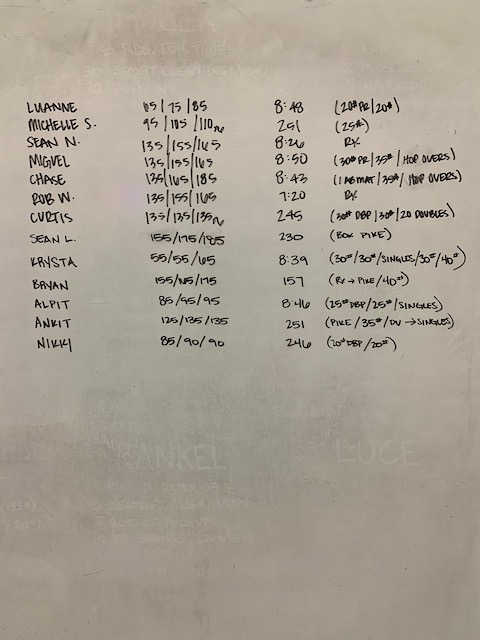 LUANNE 65/75/85 8:48 (20# PR/20#)
MICHELLE S. 95/105/110 251 (25#)
SEAN N. 135/155/165 8:26 RX
MIGUEL 135/155/165 8:50 (30# PR/35#/HOP OVERS)
CHASE 135/165/185 8:43 (1 ABMAT/35#/HOP OVERS)
ROB W. 135/155/165 7:20 RX
CURTIS 135/135/135 245 (30# DBP/30#/20 DOUBLES)
SEAN L. 155/175/185 230 (BOX PIKE)
KRYSTA 55/55/65 8:39 (30#/30#/SINGLES/30#/40#)
BRYAN 155/165/175 157 (RX → PIKE/40#)
ALPIT 85/95/95 8:46 (25# DBP/25#/SINGLES)
ANKIT 125/135/135 251 (PIKE/35#/DU → SINGLES)
NIKKI 85/90/90 246 (20# DBP/20#)
RANKEL LUCE